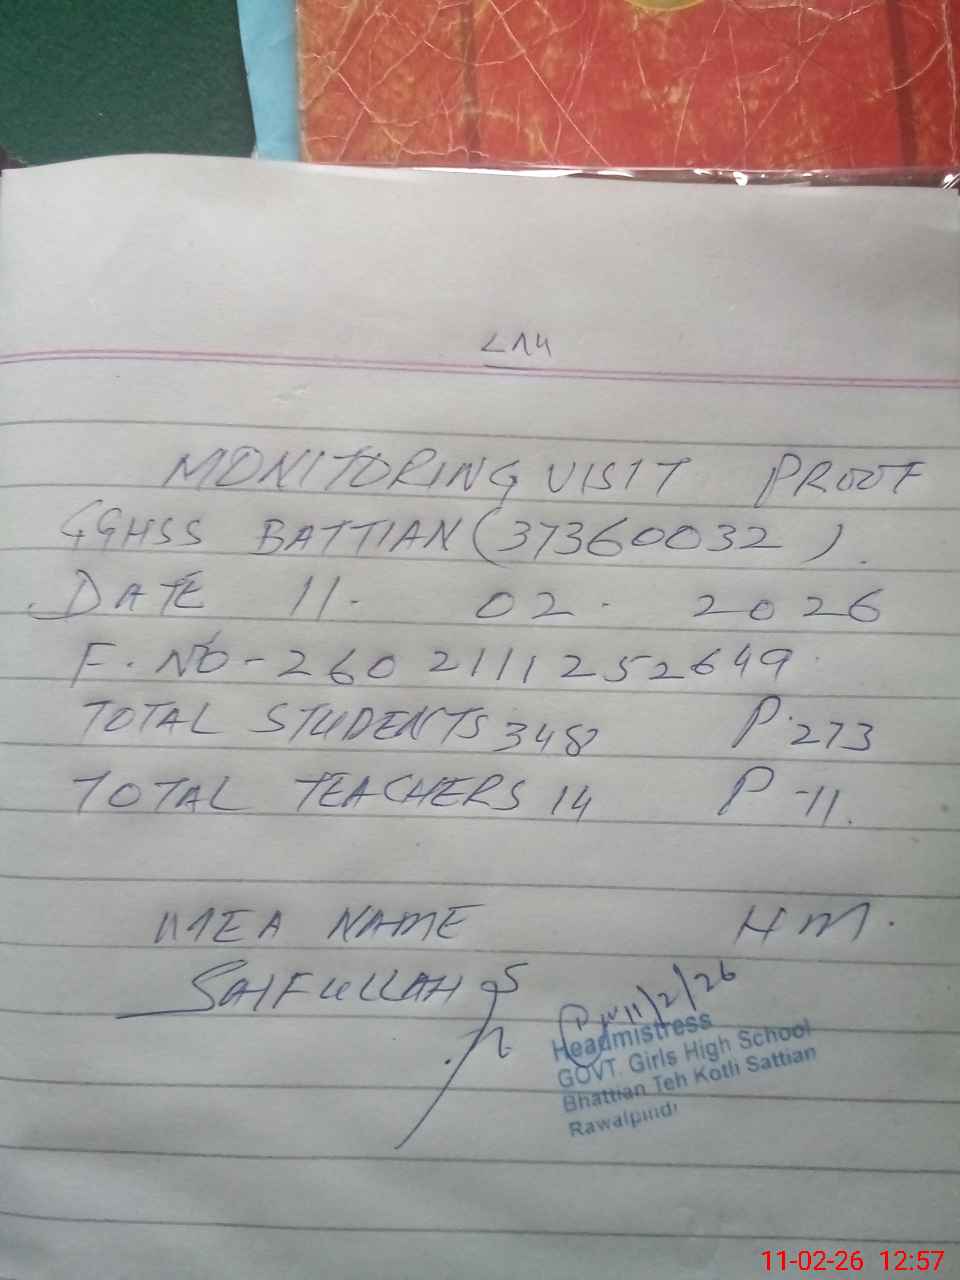 MONITORING VISIT PROOF
GGHSS BATTIAN (37360032).
DATE 11. 02. 2026
F. NO - 2602111252649
TOTAL STUDENTS 348 P. 273
TOTAL TEACHERS 14 P - 11.
MEA NAME HM.
SAIFULLAH
11/2/26
Headmistress
GOVT. Girls High School
Bhattian Teh Kotli Sattian
Rawalpindi
11-02-26 12:57